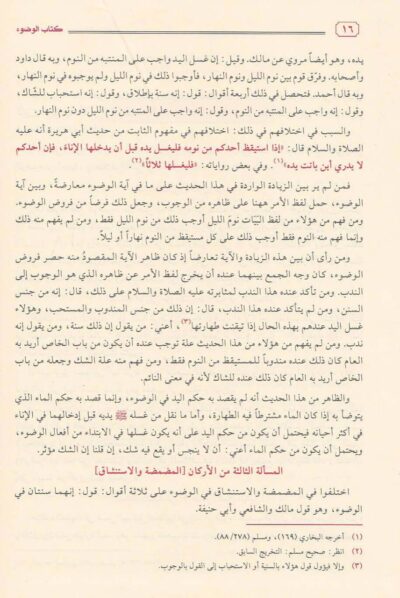 ١٦
كتاب الوضوء
يده، وهو أيضاً مروي عن مالك. وقيل: إن غسل اليد واجب على المنتبه من النوم، وبه قال داود
وأصحابه. وفرّق قوم بين نوم الليل ونوم النهار، فأوجبوا ذلك في نوم الليل ولم يوجبوه في نوم النهار،
وبه قال أحمد. فتحصل في ذلك أربعة أقوال: قول: إنه سنة بإطلاق، وقول: إنه استحباب للشاك،
وقول: إنه واجب على المنتبه من النوم، وقول: إنه واجب على المنتبه من نوم الليل دون نوم النهار.
والسبب في اختلافهم في ذلك: اختلافهم في مفهوم الثابت من حديث أبي هريرة أنه عليه
الصلاة والسلام قال: «إذا استيقظ أحدكم من نومه فليغسل يده قبل أن يدخلها الإناء، فإن أحدكم
لا يدري أين باتت يده»(١). وفي بعض رواياته: «فليغسلها ثلاثاً»(٢).
فمن لم ير بين الزيادة الواردة في هذا الحديث على ما في آية الوضوء معارضة، وبين آية
الوضوء، حمل لفظ الأمر ههنا على ظاهره من الوجوب، وجعل ذلك فرضاً من فروض الوضوء.
ومن فهم من هؤلاء من لفظ البيات نوم الليل أوجب ذلك من نوم الليل فقط، ومن لم يفهم منه ذلك
وإنما فهم منه النوم فقط أوجب ذلك على كل مستيقظ من النوم نهاراً أو ليلاً.
ومن رأى أن بين هذه الزيادة والآية تعارضاً إذ كان ظاهر الآية المقصودُ منه حصر فروض
الوضوء، كان وجه الجمع بينهما عنده أن يخرج لفظ الأمر عن ظاهره الذي هو الوجوب إلى
الندب. ومن تأكد عنده هذا الندب لمثابرته عليه الصلاة والسلام على ذلك، قال: إنه من جنس
السنن، ومن لم يتأكد عنده هذا الندب، قال: إن ذلك من جنس المندوب والمستحب، وهؤلاء
غسل اليد عندهم بهذه الحال إذا تيقنت طهارتها(٣)، أعني: من يقول إن ذلك سنة، ومن يقول إنه
ندب. ومن لم يفهم من هؤلاء من هذا الحديث علة توجب عنده أن يكون من باب الخاص أريد به
العام كان ذلك عنده مندوباً للمستيقظ من النوم فقط، ومن فهم منه علة الشك وجعله من باب
الخاص أريد به العام كان ذلك عنده للشاك لأنه في معنى النائم.
والظاهر من هذا الحديث أنه لم يقصد به حكم اليد في الوضوء، وإنما قصد به حكم الماء الذي
يتوضأ به إذا كان الماء مشترطاً فيه الطهارة، وأما ما نقل من غسله ﷺ يديه قبل إدخالهما في الإناء
في أكثر أحيانه فيحتمل أن يكون من حكم اليد على أنه يكون غسلها في الابتداء من أفعال الوضوء،
ويحتمل أن يكون من حكم الماء أعني: أن لا ينجس أو يقع فيه شك، إن قلنا إن الشك مؤثر.
المسألة الثالثة من الأركان [المضمضة والاستنشاق]
اختلفوا في المضمضة والاستنشاق في الوضوء على ثلاثة أقوال: قول: إنهما سنتان في
الوضوء، وهو قول مالك والشافعي وأبي حنيفة.
(١) أخرجه البخاري (١٦٩)، ومسلم (٨٨/٢٧٨).
(٢) انظر: صحيح مسلم: التخريج السابق.
(٣) وإلا فيؤول قول هؤلاء بالسنية أو الاستحباب إلى القول بالوجوب.